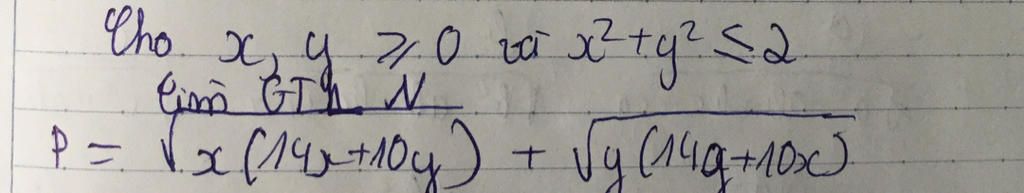 Cho x, y ≥ 0 và x² + y² ≤ 2
Tìm GTLN
P = √x(14x+10y) + √y(14y+10x)